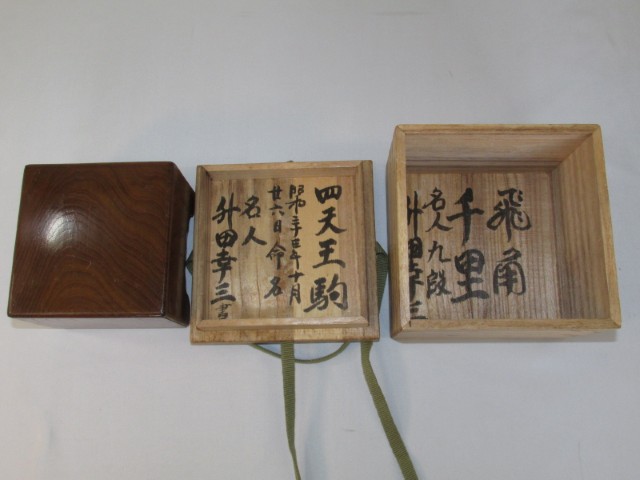 四天王駒
昭和三十三年十月
廿六日命名
名人
升田幸三書
飛角
千里
名人九段
升田幸三